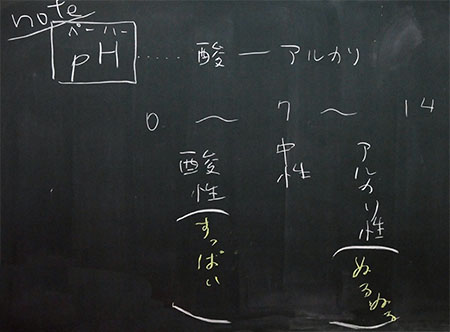 note
ペーハー
pH …… 酸 ー アルカリ
0 〜 7 〜 14
酸性
(すっぱい)
中性
アルカリ性
(ぬるぬる)